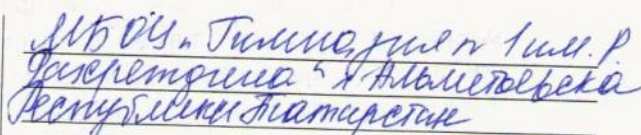 МБОУ „Гимназия №1 им. Р.
Фахретдина" г. Альметьевска
Республики Татарстан